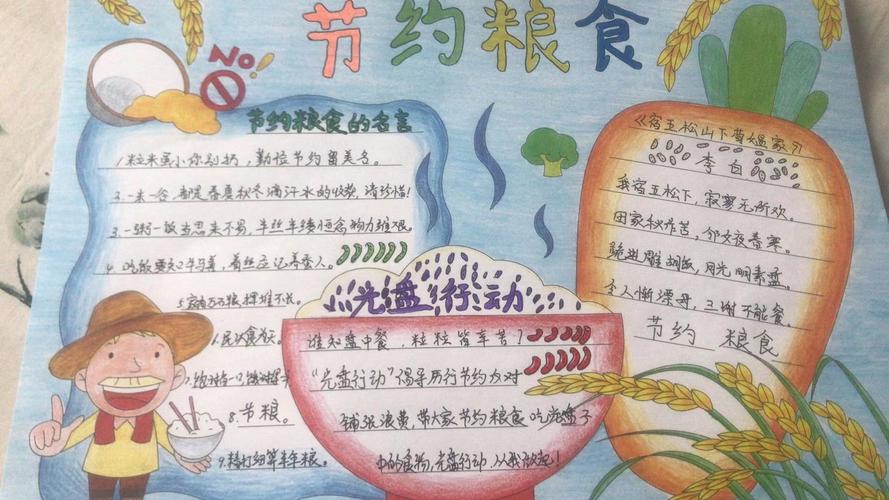 节约粮食
No!
节约粮食的名言
1.粒米虽小你别扔，勤俭节约留美名。
2.一米一谷，都是春夏秋冬滴汗水的收获，请珍惜！
3.一粥一饭当思来不易，半丝半缕恒念物力维艰。
4.吃饭要知牛马善，着丝应记养蚕人。
5.家有万石粮，挥堆不长。
6.民以食为天。
8.节粮。
9.精打细算半年粮。
光盘行动
谁知盘中餐，粒粒皆辛苦！
“光盘行动”倡导厉行节约反对
铺张浪费，带大家节约粮食吃光盘子
中的食物，光盘行动，从我做起！
《宿五松山下荀媪家》
李白
我宿五松下，寂寥无所欢。
田家秋作苦，邻女夜舂寒。
跪进雕胡饭，月光明素盘。
令人惭漂母，三谢不能餐。
节约 粮食